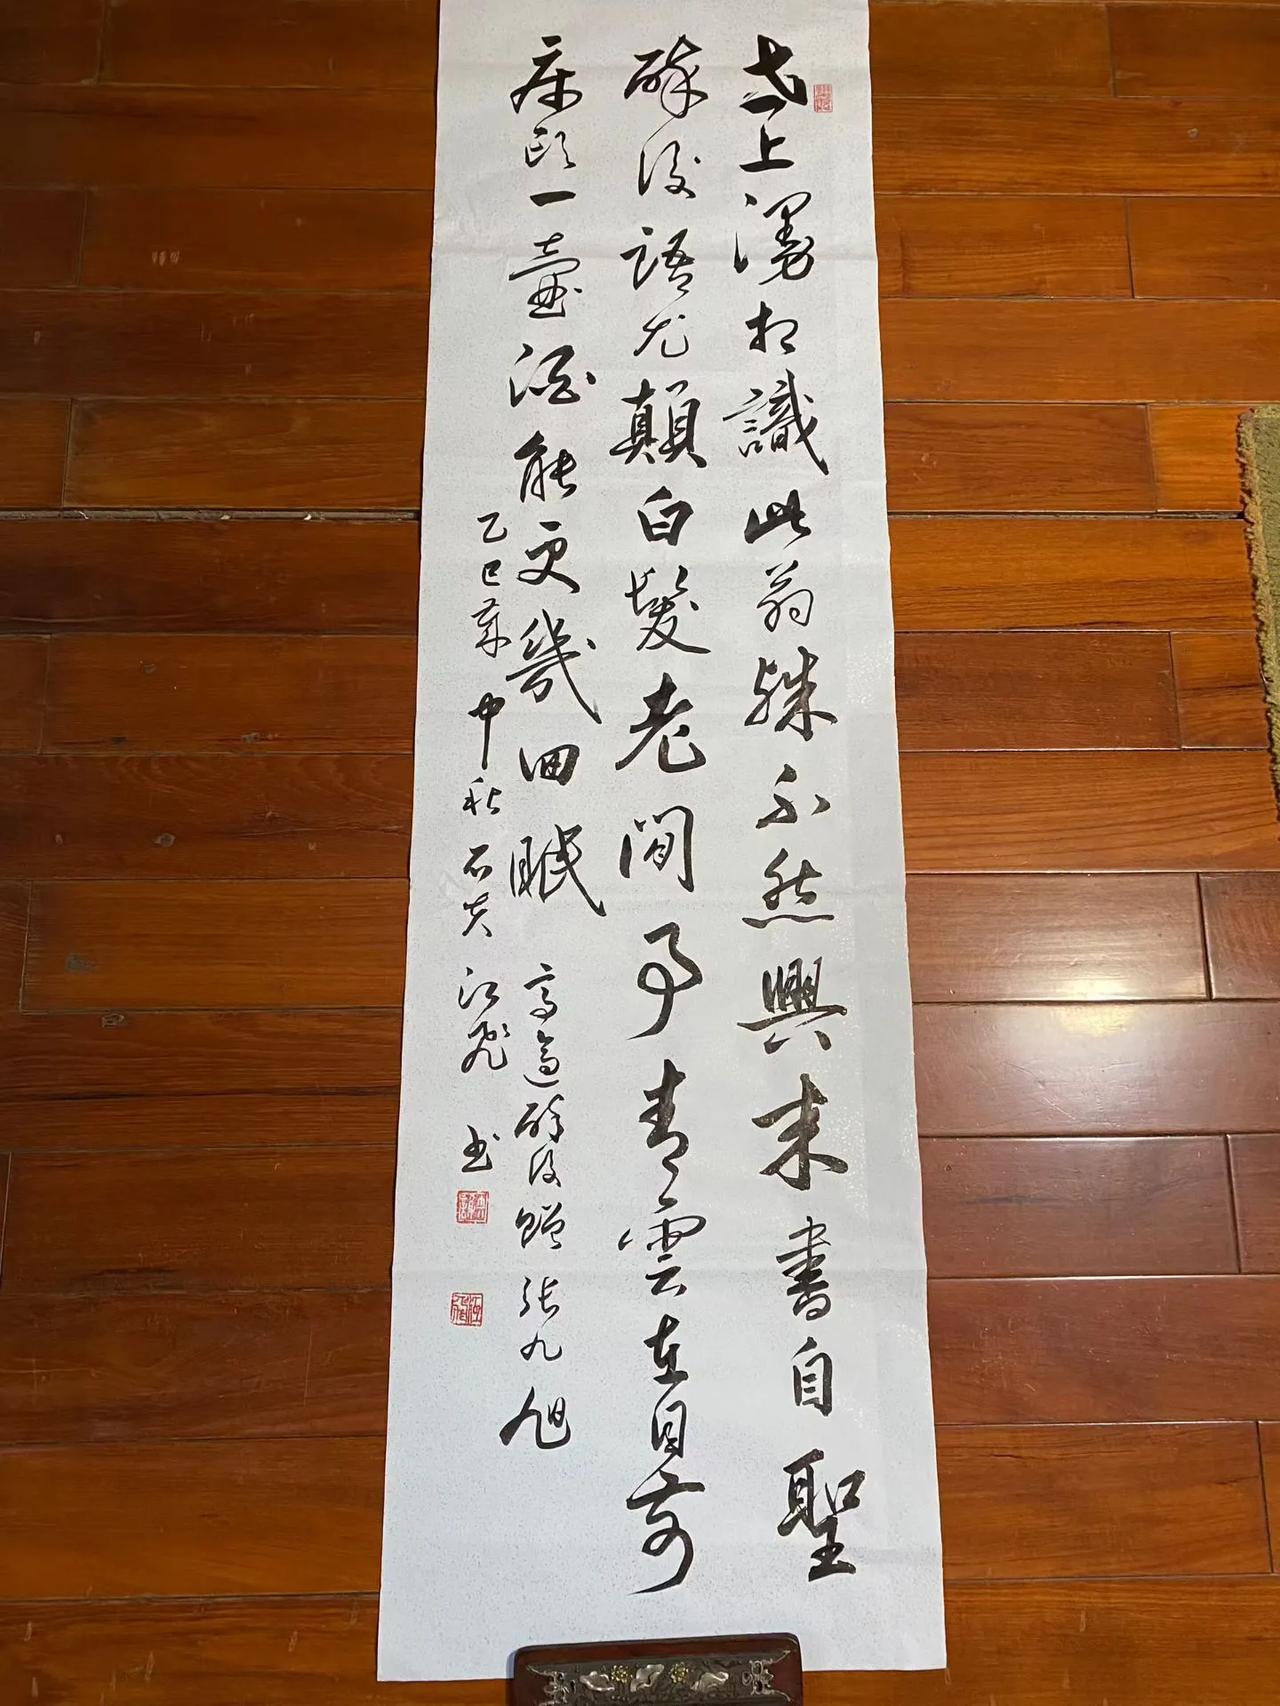 世上漫相識此翁殊不然興来書自聖
醉後語尤顛白髮老閒事青雲在目前
床頭一壺酒能更幾回眠 高適醉後贈張九旭
乙巳年中秋 江飛 书